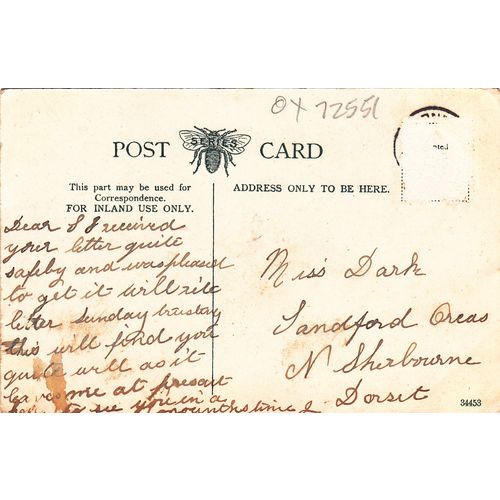 OX 72551
POST SERIES CARD
This part may be used for
Correspondence.
FOR INLAND USE ONLY.
ADDRESS ONLY TO BE HERE.
Dear S I received
your letter quite
safely and was pleased
to get it will rite
letter Sunday trustay
this will fond you
quite well as it
leaves me at presart
to see you in a
mounths time
Miss Dark
Sandford Orcas
N Sherbourne
Dorset
34453